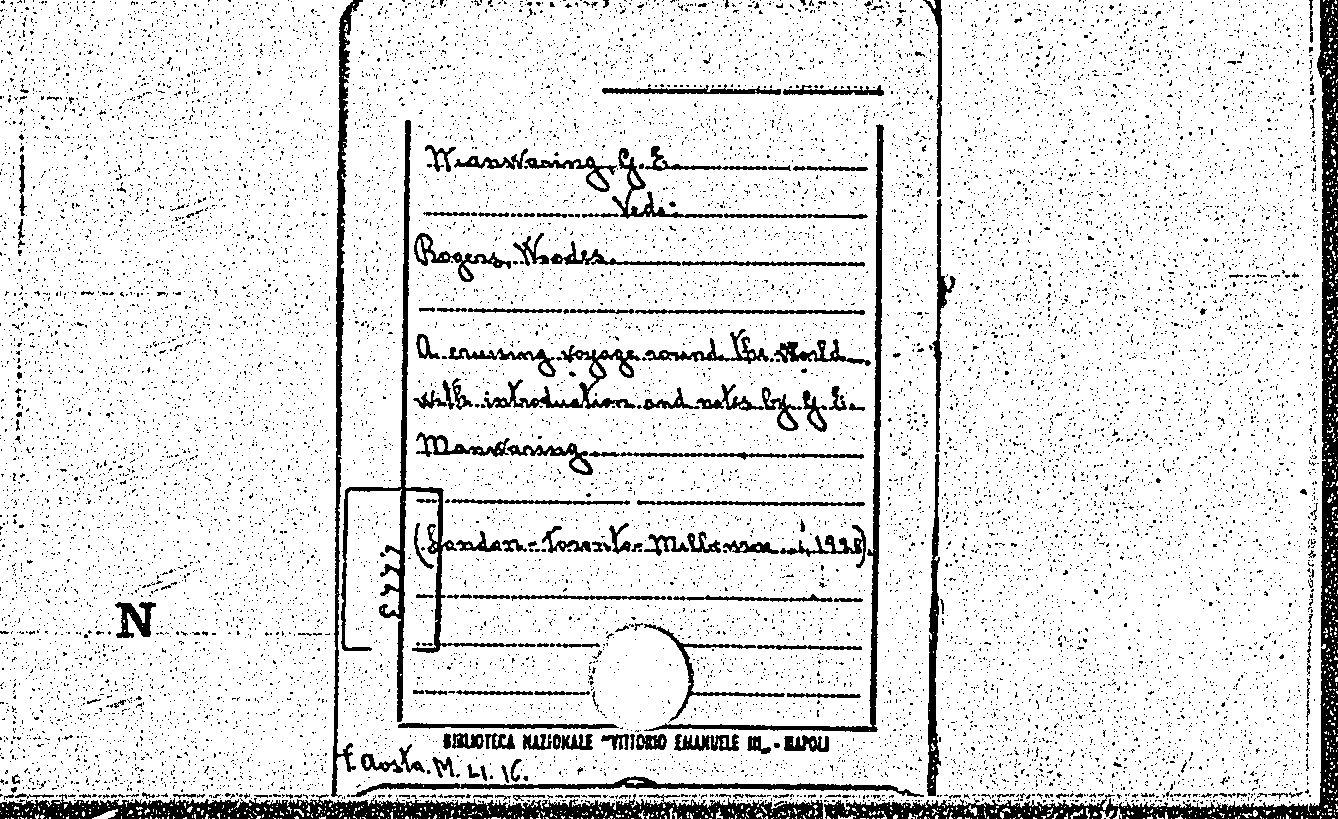 Manwaring, G. E.
Vedi:
Rogers, Woodes.
A cruising voyage round the World
with introduction and notes by G. E.
Manwaring
(London - Toronto - Melbourne ... 1928).
N
BIBLIOTECA NAZIONALE "VITTORIO EMANUELE III" - NAPOLI
f. Aosta. M. LI. 16.